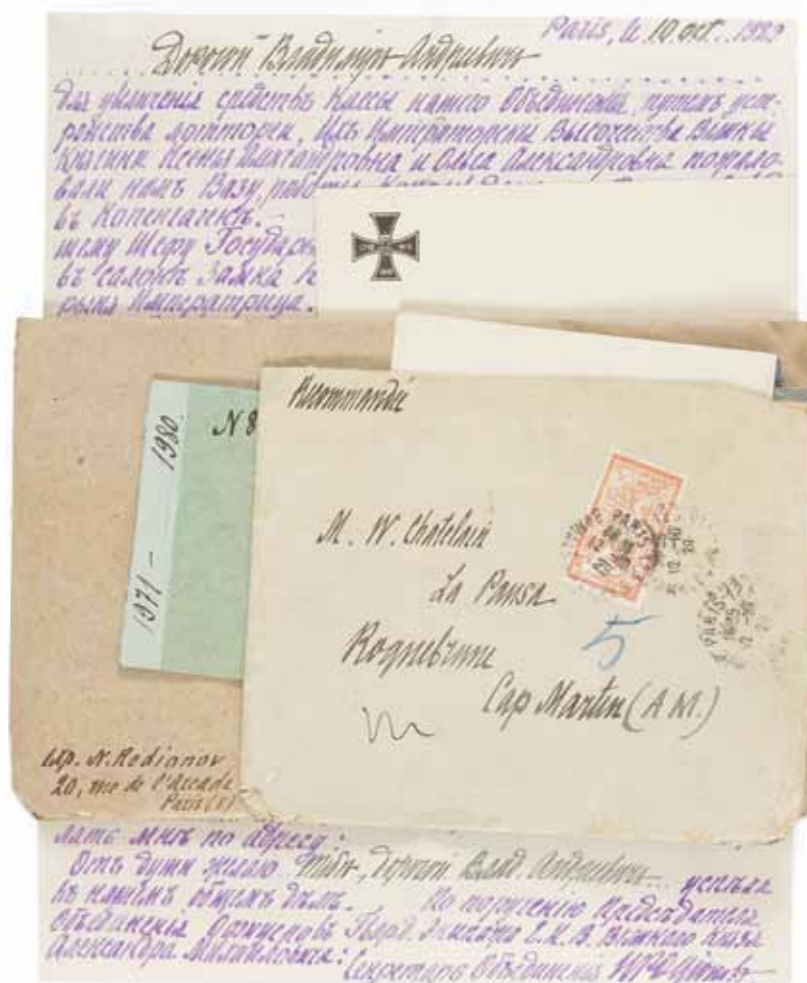 Paris, le 10 oct. 1929
Дорогой Владимiръ Андреевичъ
Для увеличенiя средствъ Кассы нашего Объединенiя, путемъ уст-
ройства лоттереи, Ихъ Императорскiя Высочества Великiя
Княгини Ксенiя Александровна и Ольга Александровна пожало-
вали намъ Вазу, работы
въ Копенгагенѣ.
шему Шефу Государын
въ салонѣ Замка
рыня Императрица.
1971 - 1980.
N 8
Recommandée
M. W. Chatelain
La Pausa
Roquebrune
Cap Martin (A M.)
5
exp. N. Rodianov
20, rue de l'Arcade
Paris (8)
лать мнѣ по адресу:
Отъ души желаю Тебѣ, Дорогой Влад. Андреевичъ успѣха
въ нашемъ общемъ дѣлѣ. По порученiю Предсѣдателя
Объединенiя Гвард. Экипажа Е. И. В. Великаго Князя
Александра Михайловича:
Секретарь Объединенiя